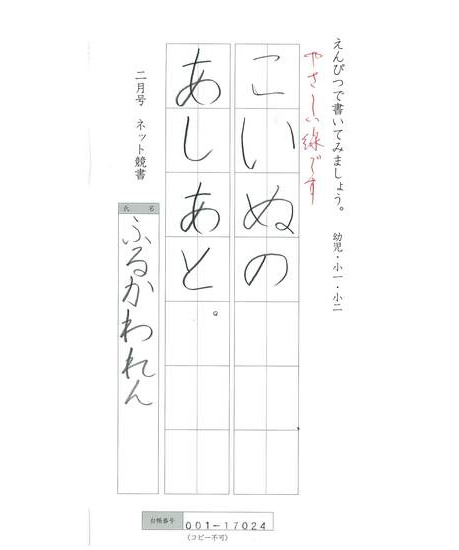 えんぴつで書いてみましょう。 幼児・小一・小二
やさしい線です
こいぬの
あしあと。
二月号 ネット競書
氏名
ふるかわれん
台帳番号 001-17024
(コピー不可)